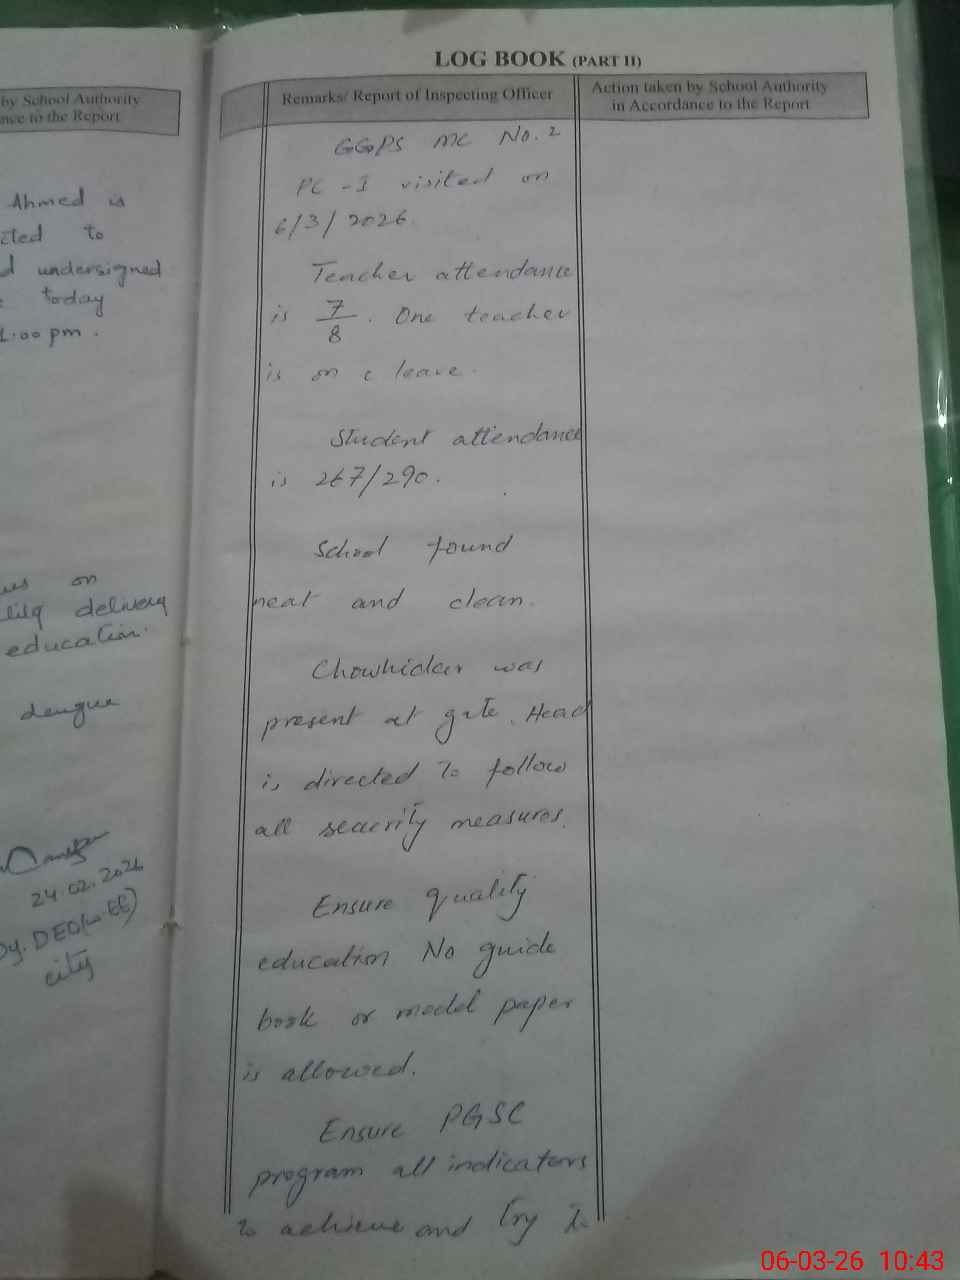 LOG BOOK (PART II)
by School Authority
nce to the Report
Remarks/ Report of Inspecting Officer
Action taken by School Authority
in Accordance to the Report
Ahmed is
cted to
d undersigned
today
1.00 pm.
on
delivery
education.
dengue
24.02.2026
Dy. DEO
city
GGPS MC No. 2
PC-I visited on
6/3/2026.
Teacher attendance
is 7/8. One teacher
is on c leave.
Student attendance
is 267/290.
School found
neat and clean.
Chowkidar was
present at gate. Head
is directed to follow
all security measures.
Ensure quality
education No guide
book or model paper
is allowed.
Ensure PGSC
program all indicators
to achieve and try to
06-03-26 10:43